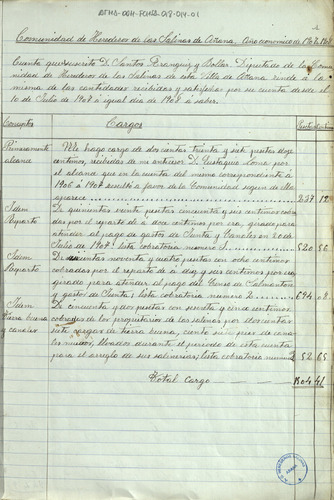 ATHA-DAH-FCHSA-018-014-01
Comunidad de Herederos de las Salinas de Añana. Año económico de 1907 á 1908
Cuenta que suscrito D. Santos Eranguez y Dollar Diputado de la Comu
nidad de Herederos de las Salinas de esta Villa de Añana rinde á la
misma de las cantidades recibidas y satisfechas por su cuenta desde el
10 de Julio de 1907 á igual día de 1908 á saber.
Conceptos Cargos
Primeramente Me hago cargo de doscientas treinta y siete pesetas doce
alcance céntimos, recibidas de mi anterior D. Eustaquio por
el alcance que en la cuenta del mismo correspondiente á
1906 á 1907 resultó a favor de la Comunidad según de ella
aparece 237 12
Idem De quinientas veinte pesetas cincuenta y seis céntimos cobra
Reparto das por el reparto de á doce céntimos por era girado para
atender al pago de gastos de Junta y Canales en 20 de
Julio de 1907; lista cobratoria número 1. 520 56
Idem De seiscientas noventa y cuatro pesetas con ocho céntimos
Reparto cobradas por el reparto de á diez y seis céntimos por era
girado para atender al pago del Censo de
y gastos de Junta; lista cobratoria número 2. 694 08
Idem De cincuenta y dos pesetas con sesenta y cinco céntimos
tierra buena cobradas de los propietarios de las salinas por doscientas
y canales siete cargas de tierra buena, ciento cinco pies de cana
les nuevos, llevados durante el período de esta cuenta
para el arreglo de sus salineras; lista cobratoria número 3 52 65
Total Cargo 1504 41